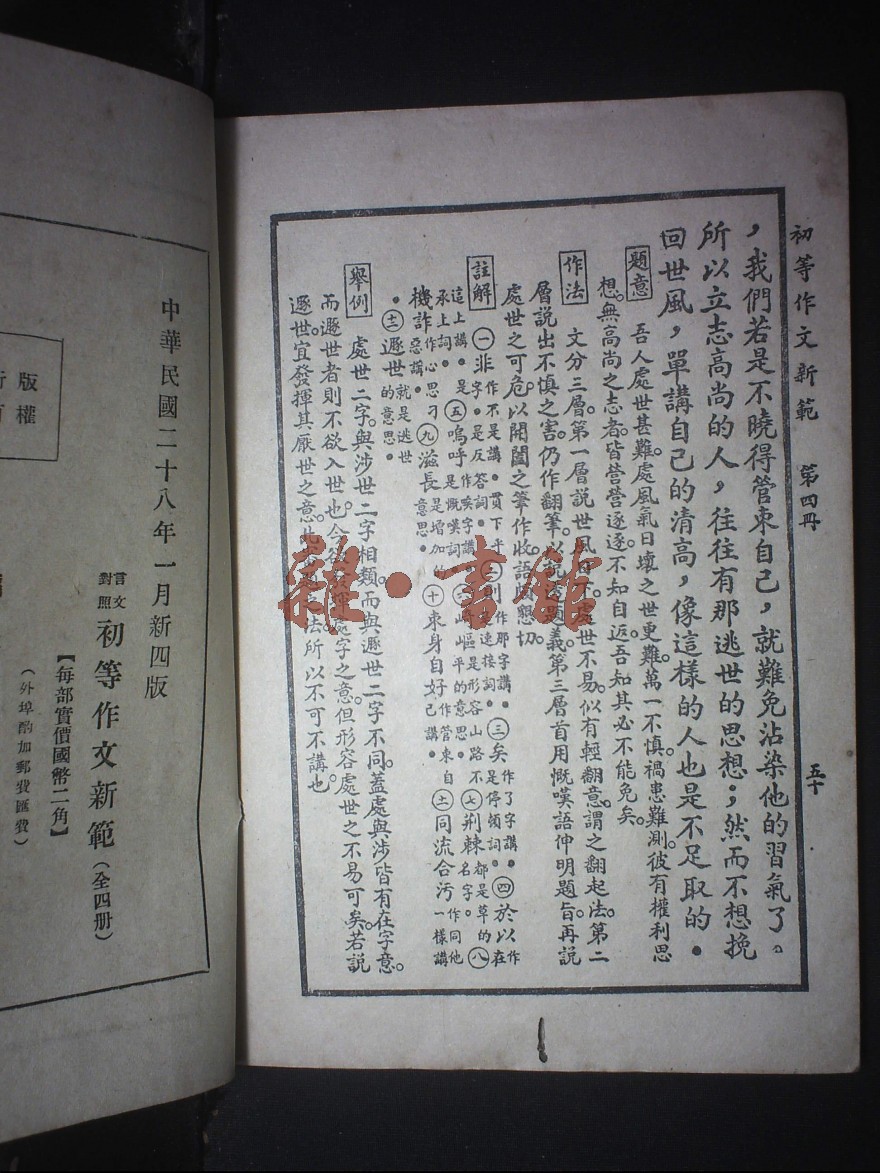 初等作文新範　第四冊
五十
，我們若是不曉得管束自己，就難免沾染他的習氣了。
所以立志高尚的人，往往有那逃世的思想；然而不想挽
回世風，單講自己的清高，像這樣的人也是不足取的．
題意　吾人處世甚難。處風氣日壞之世更難。萬一不慎。禍患難測。彼有權利思
想。無高尚之志者。皆營營逐逐。不知自返。吾知其必不能免矣。
作法　文分三層。第一層説世風日下。處世不易。似有輕翻意。謂之翻起法。第二
層説出不慎之害。仍作翻筆。以説題義。第三層首用慨嘆語伸明題旨。再説
處世之可危。以開闔之筆作收。語懇切。
註解　㊀非作不是講．貫下平字．是反答詞．㊁則作那字講．更連接詞．㊂矣作了字講．是停頓詞．㊃於以作在
這上講．是承上詞．㊄嗚呼作唉字講．是慨嘆詞．㊅崎嶇是形容山路不平的意思．㊆荆棘都是草的名字．㊇
機詐作心思刁惡講．㊈滋長是增加的意思．㊉束身自好作管束自己講．(十一)同流合污作同他一樣講
．(十二)遯世就是逃世的意思．
舉例　處世二字。與涉世二字相類。而與遯世二字不同。蓋處與涉皆有在字意。
而遯世者則不欲入世也。今欲發揮處字之意。但形容處世之不易可矣。若説
遯世。宜發揮其厭世之意。此之法所以不可不講也
雜·書館
中華民國二十八年一月新四版
言文對照　初等作文新範（全四册）
【每部實價國幣二角】
（外埠酌加郵費匯費）
版權